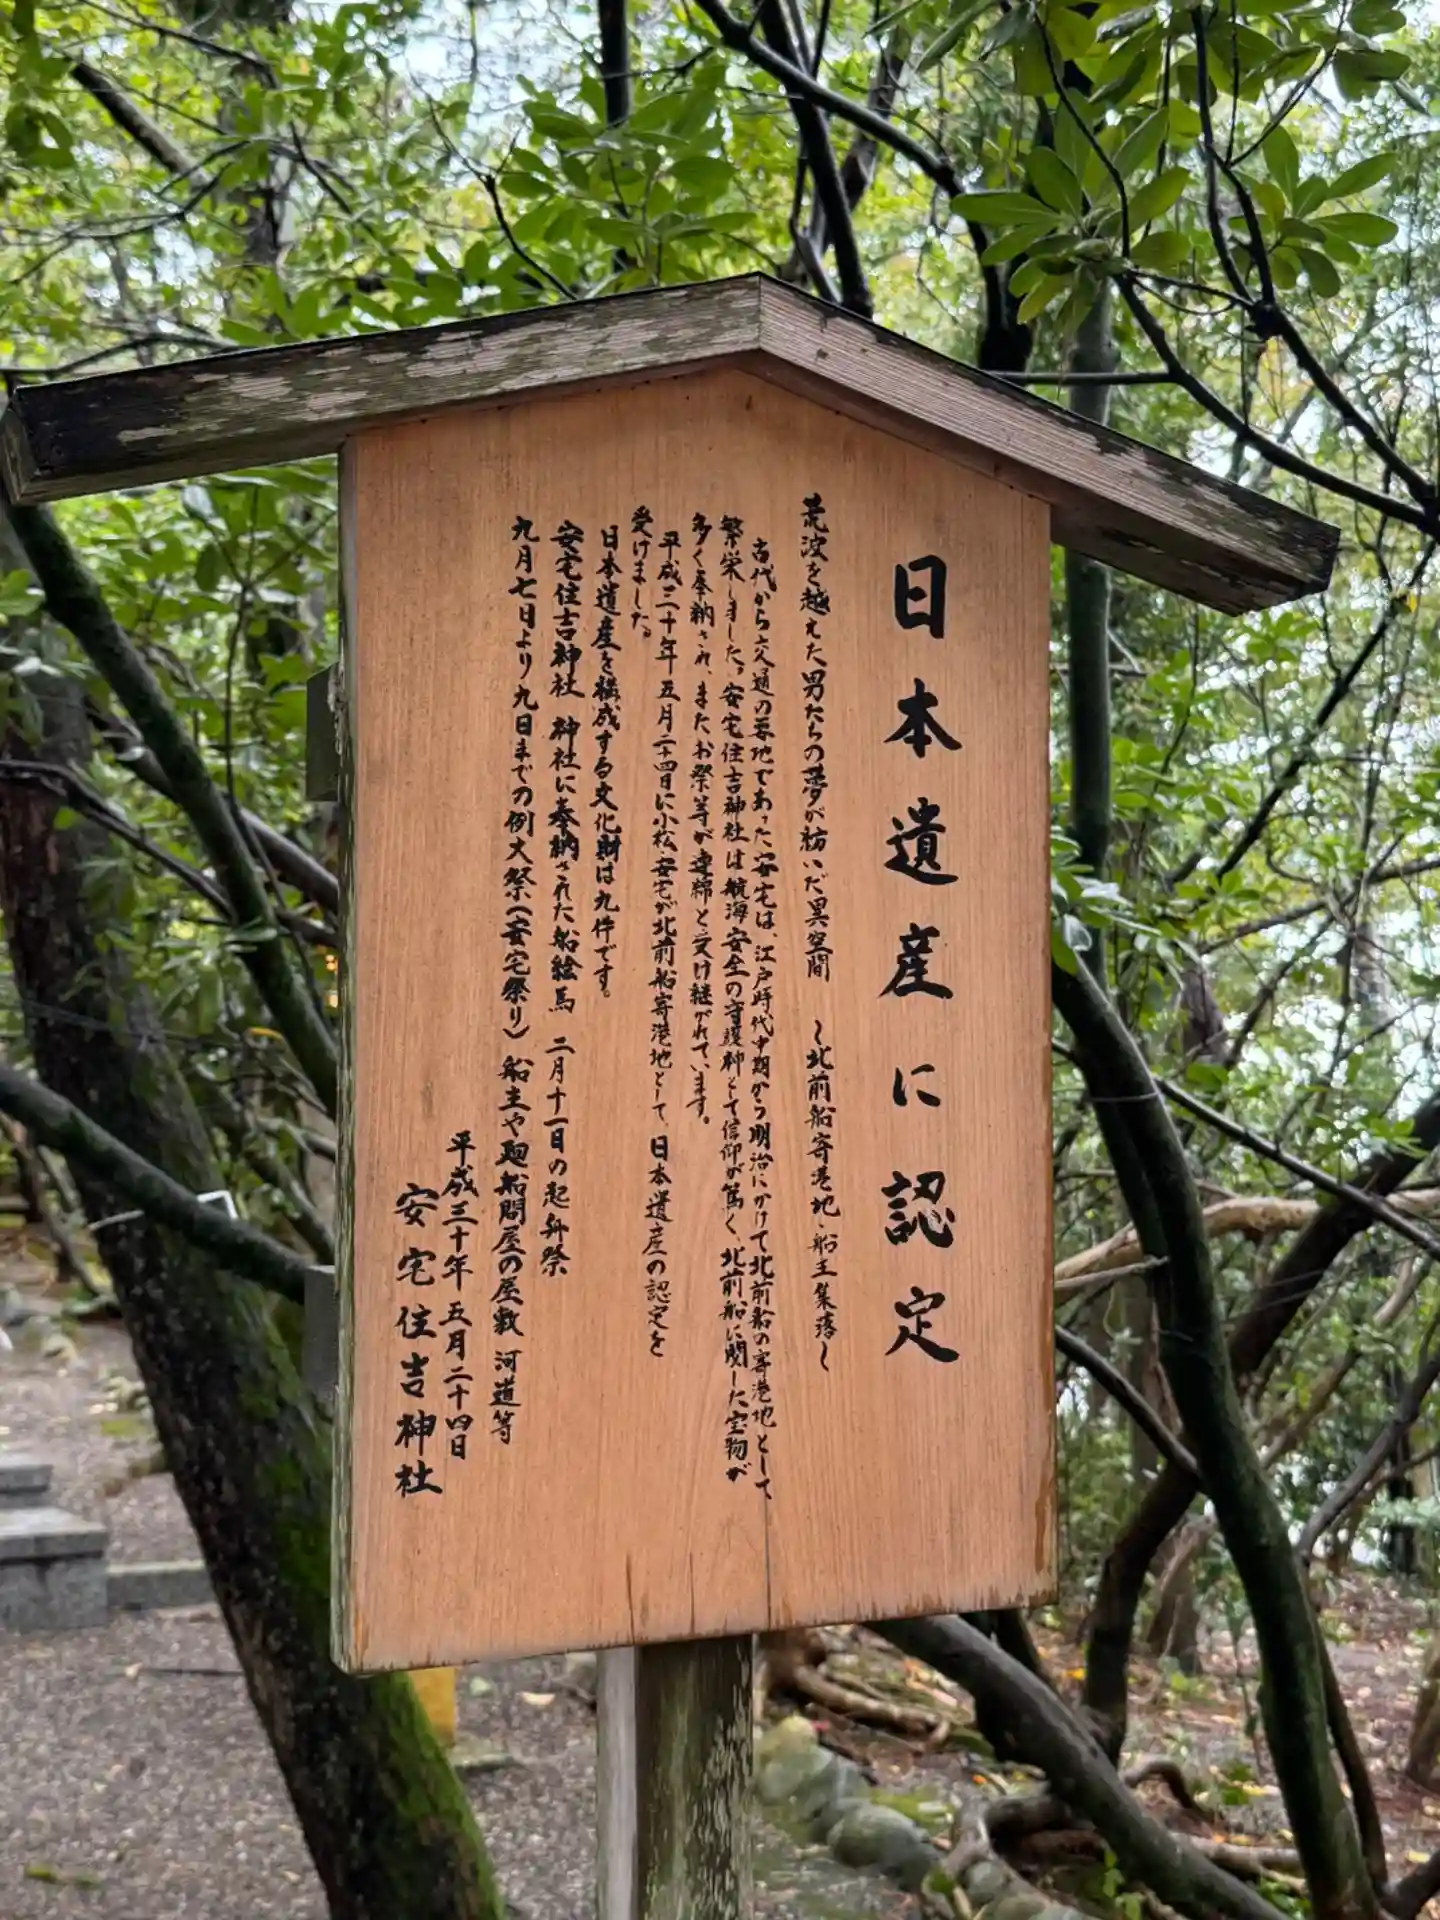 日本遺産に認定
荒波を越えた男たちの夢が紡いだ異空間 ～北前船寄港地・船主集落～
古代から交通の要地であった安宅は、江戸時代中期から明治にかけて北前船の寄港地として
繁栄しました。安宅住吉神社は航海安全の守護神として信仰が篤く、北前船に関した宝物が
多く奉納され、またお祭等が連綿と受け継がれています。
平成三十年五月二十四日に小松・安宅が北前船寄港地として、日本遺産の認定を
受けました。
日本遺産を構成する文化財は九件です。
安宅住吉神社 神社に奉納された船絵馬 二月十一日の起舟祭
九月七日より九日までの例大祭(安宅祭り) 船主や廻船問屋の屋敷 河道等
平成三十年 五月二十四日
安宅住吉神社